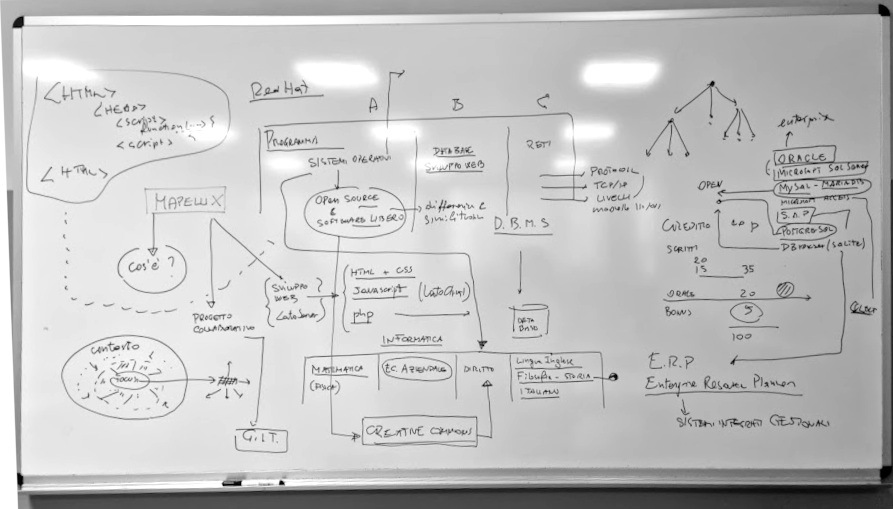 <HTML>
<HEAD>
<script>
function
<script>
<HTML>
MAPELLIX
cos'è ?
PROGETTO
COLLABORATIVO
G.I.T.
contorio
FOCUS
SVILUPPO
WEB
Lato Server
Red Hat
A B C
PROGRAMMA
SISTEMI OPERATIVI
OPEN SOURCE
&
SOFTWARE LIBERO
differenze e
similitudini
DATABASE
SVILUPPO WEB
RETI
PROTOCOLLI
TCP/IP
LIVELLI
modello ISO/OSI
D.B.M.S
DATA
BASE
HTML + CSS
JAVASCRIPT (Lato Client)
php
INFORMATICA
MATEMATICA
(FISICA)
EC. AZIENDALE
DIRITTO
Lingua Inglese
Filosofia - STORIA
ITALIANO
CREATIVE COMMONS
enterprise
ORACLE
MICROSOFT SQL SERVER
OPEN
MySQL - MARIADB
S.A.P
POSTGRESQL
(SQLITE)
SELECT
SCRITTI
20
15 35
ORALE 20
BONUS 5
100
E.R.P
Enterprise Resource Planning
SISTEMI INTEGRATI GESTIONALI